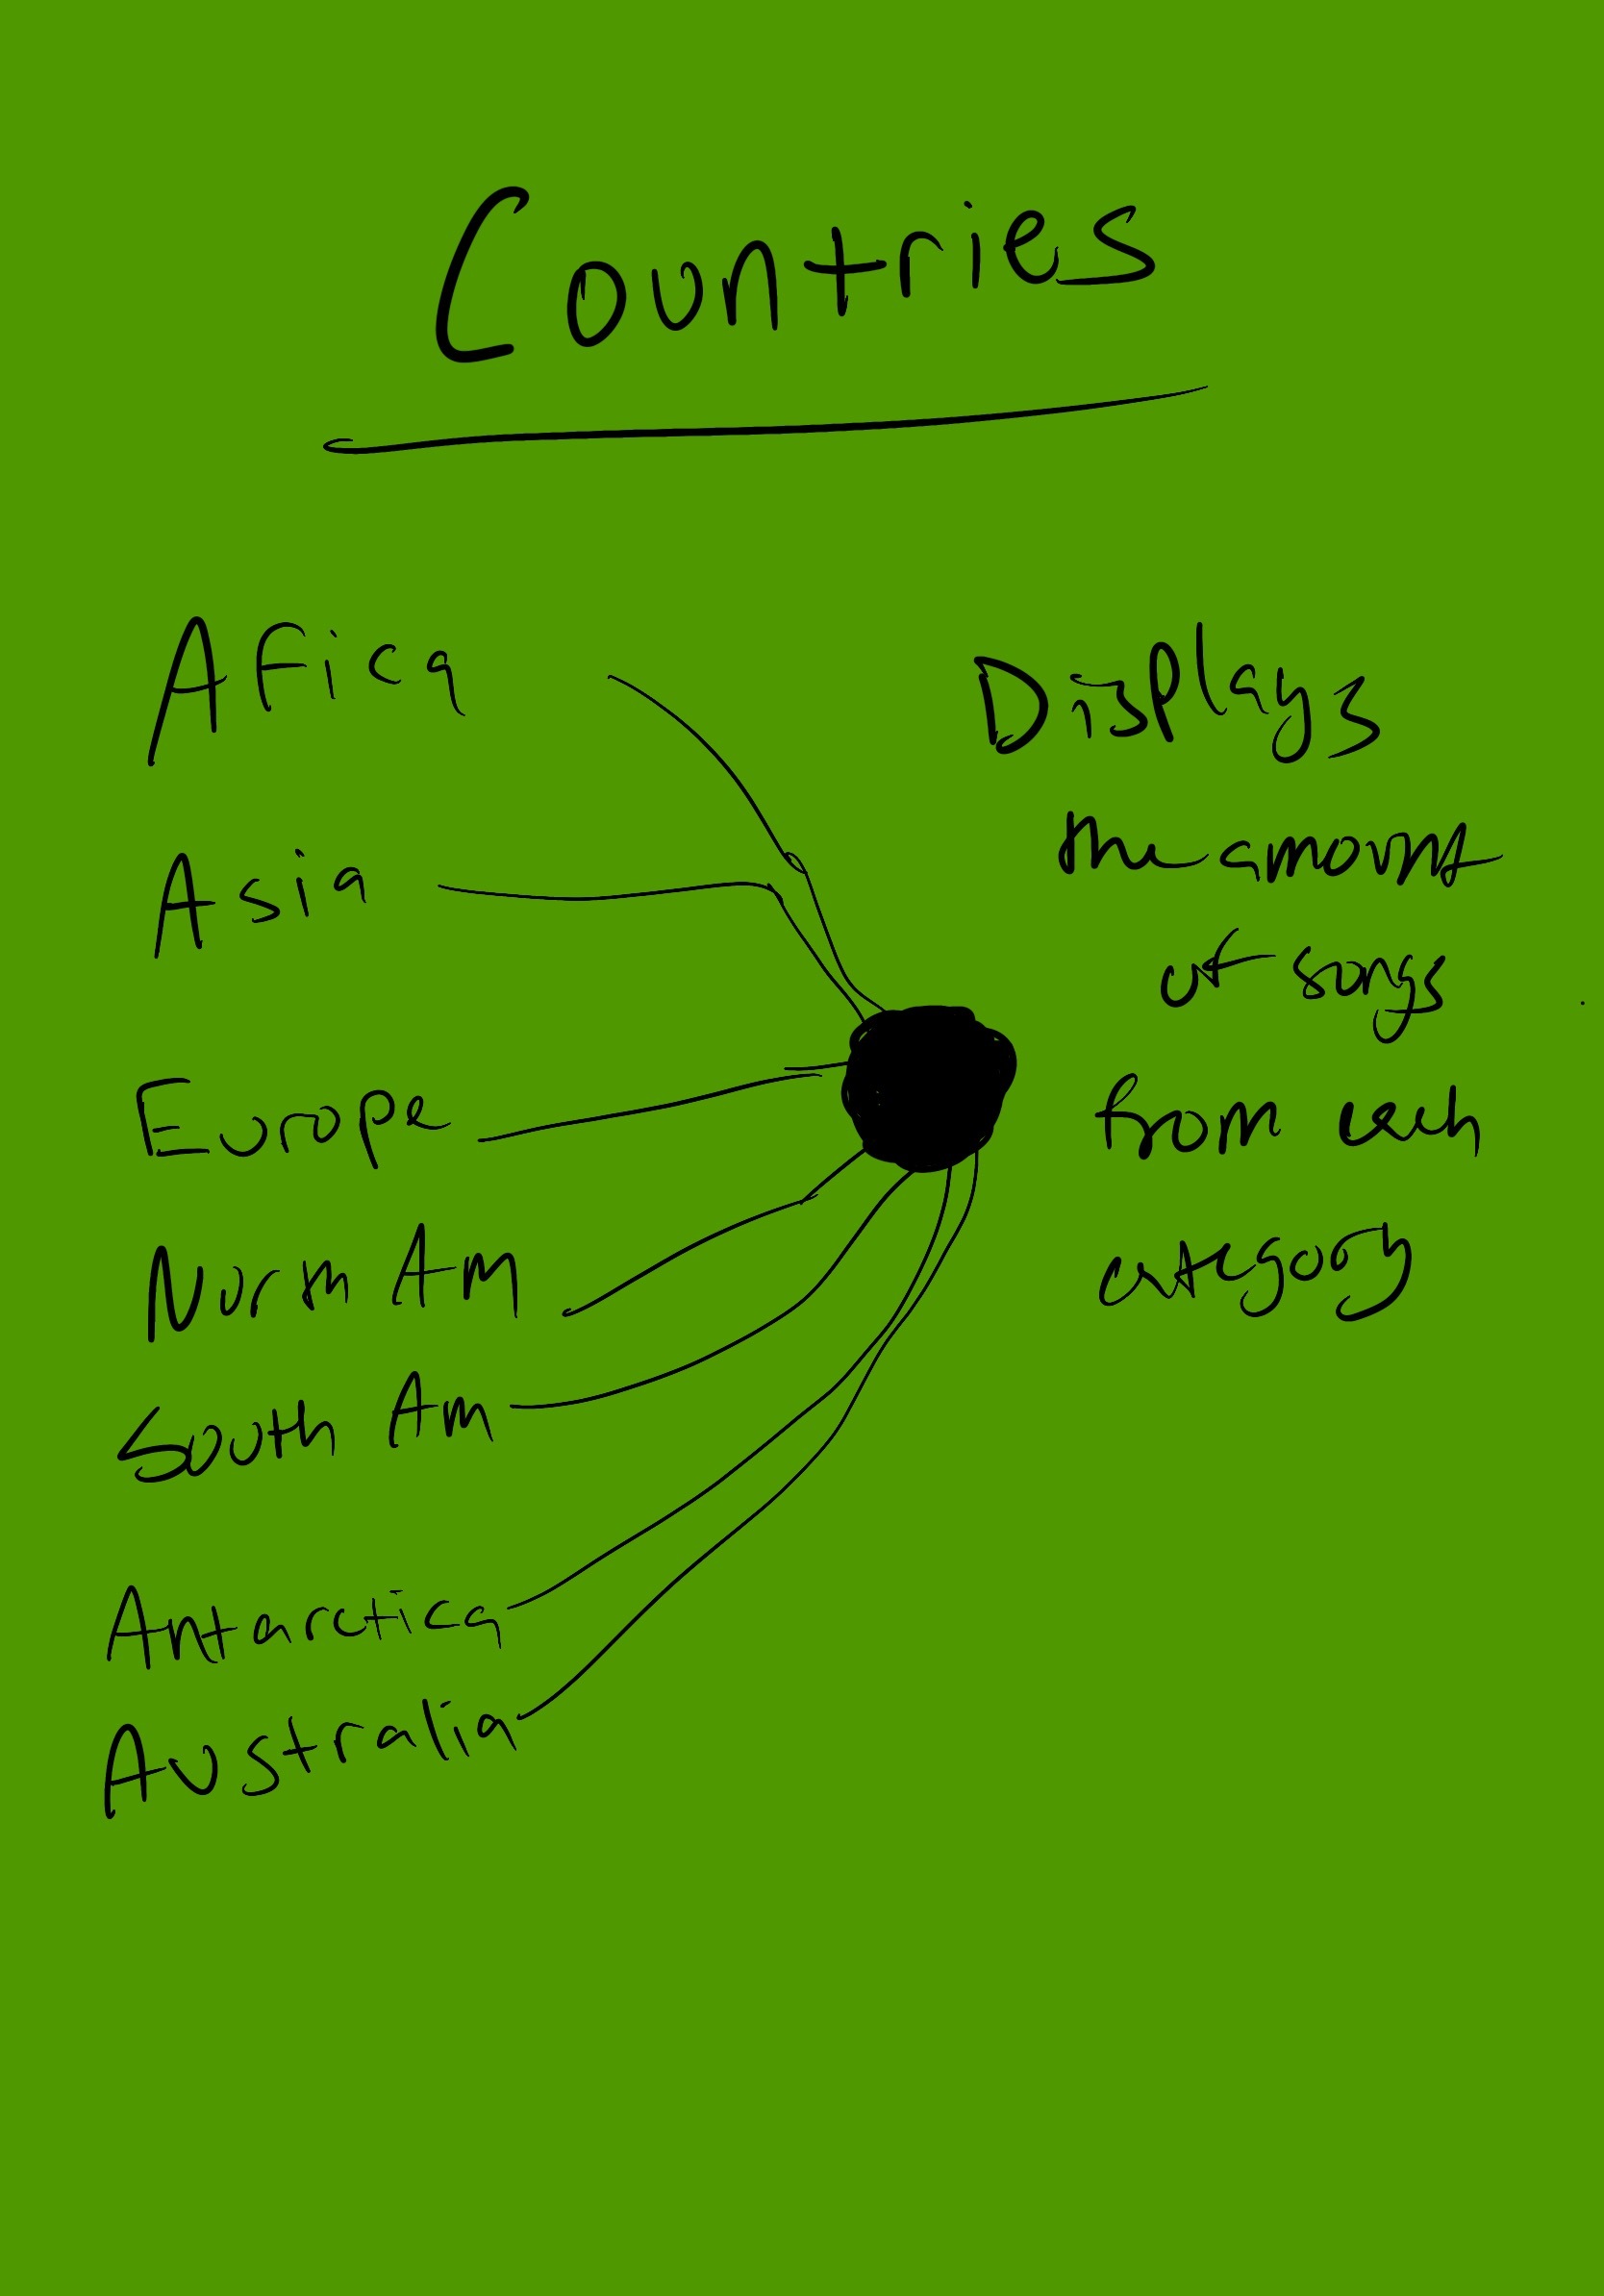 Countries
Afica
Asia
Europe
Norm Am
South Am
Antarctica
Australia
Displays
the amount
of songs
from each
category